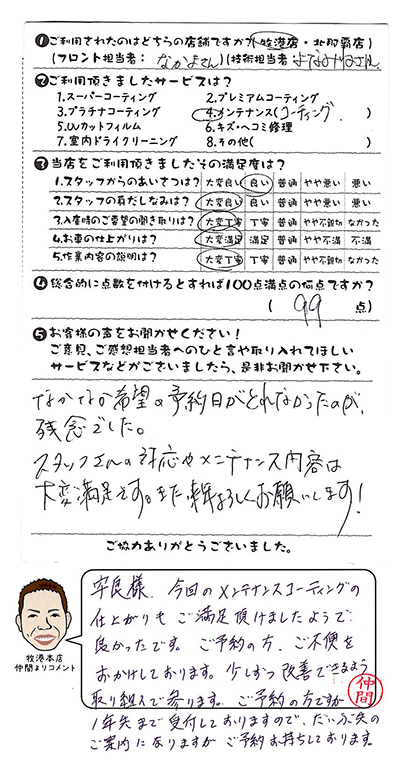 ❶ご利用されたのはどちらの店舗ですか?(牧港店・北那覇店)
(フロント担当者: なかまさん)(技術担当者 よなみねさん
❷ご利用頂きましたサービスは?
1.スーパーコーティング 2.プレミアムコーティング
3.プラチナコーティング 4.メンテナンス(コーティング )
5.UVカットフィルム 6.キズ・ヘコミ修理
7.室内ドライクリーニング 8.その他( )
❸当店をご利用頂きましたその満足度は?
1.スタッフからのあいさつは? 大変良い 良い 普通 やや悪い 悪い
2.スタッフの身だしなみは? 大変良い 良い 普通 やや悪い 悪い
3.入店時のご要望の聞き取りは? 大変丁寧 丁寧 普通 やや不親切 なかった
4.お車の仕上がりは? 大変満足 満足 普通 やや不満 不満
5.作業内容の説明は? 大変丁寧 丁寧 普通 やや不親切 なかった
❹総合的に点数を付けるとすれば100点満点の何点ですか?
( 99 点)
❺お客様の声をお聞かせください!
ご意見、ご感想担当者へのひと言や取り入れてほしい
サービスなどがございましたら、是非お聞かせ下さい。
なかなか希望の予約日がとれなかったのが、
残念でした。
スタッフさんの対応やメンテナンス内容は
大変満足です。また来年よろしくお願いします!
ご協力ありがとうございました。
宇良様、今回のメンテナンスコーティングの
仕上がりも ご満足頂けましたようで
良かったです。ご予約の方、ご不便を
おかけしております。少しずつ改善できるよう
取り組んで参ります。ご予約の方ですが
1年先まで受付しておりますので、だいぶ先の
ご案内になりますが ご予約お待ちしております。
仲間
牧港本店
仲間よりコメント